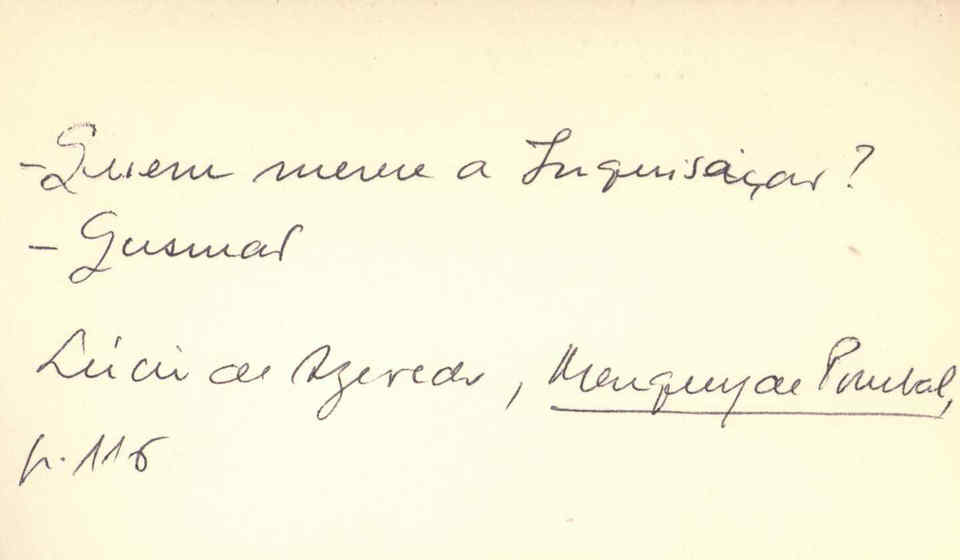 - Quem move a Inquisição?
- Gusmão
Lúcio de Azevedo, Marquez de Pombal,
p. 116